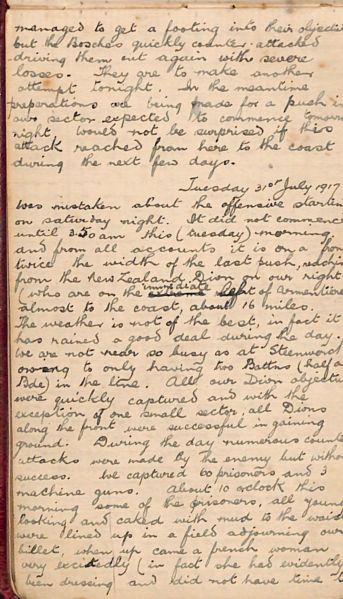 managed to get a footing into their objective
but the Bosches quickly counter-attacked
driving them out again with severe
losses. They are to make another
attempt tonight. In the meantime
preparations are being made for a push in
our sector expected to commence tomorrow
night. Would not be surprised if this
attack reached from here to the coast
during the next few days.
Tuesday 31st July 1917
Was mistaken about the offensive starting
on saturday night. It did not commence
until 3.50 am this (tuesday) morning
and from all accounts it is on a front
twice the width of the last push, reaching
from the New Zealand Divn on our right
(who are on the immediate left of Armentieres
almost to the coast, about 16 miles.
The weather is not of the best, in fact it
has rained a good deal during the day.
We are not near so busy as at Steenwerck
owing to only having two Battns (half a
Bde) in the line. All our Divn objectives
were quickly captured and with the
exception of one small sector, all Divns
along the front were successful in gaining
ground. During the day numerous counter
attacks were made by the enemy but without
success. We captured 60 prisoners and 3
machine guns. About 10 oclock this
morning some of the prisoners, all young
looking and caked with mud to the waist
were lined up in a field adjourning our
billet, when up came a french woman
very excitedly (in fact she had evidently
been dressing and did not have time t